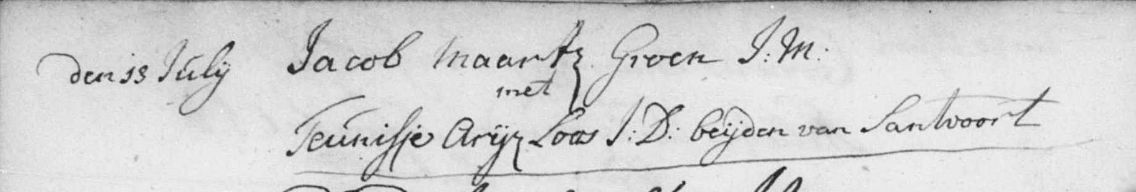 den 13 Julij Jacob Maartz Groen J: M:
met
Teunisje Arijz Loos J: D: beijden van Santvoort